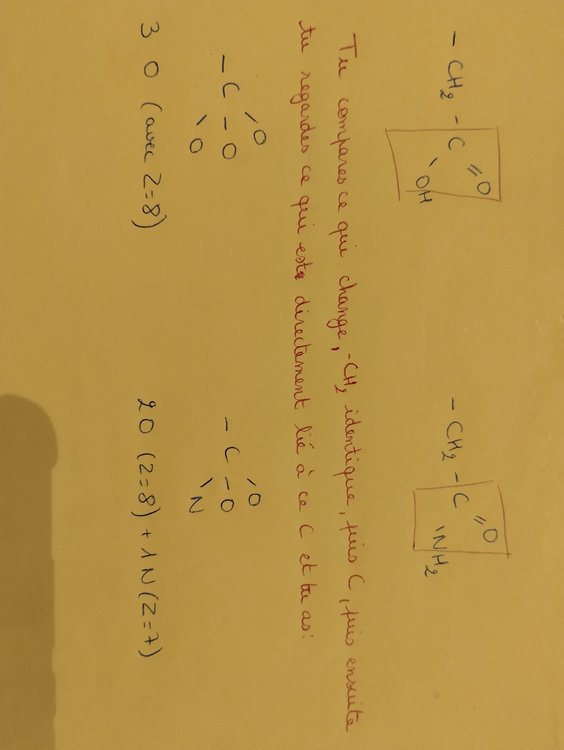 - CH2 - C =O OH
- CH2 - C =O NH2
Tu compares ce qui change, -CH2 identique, puis C, puis ensuite
tu regardes ce qui est directement lié à ce C et tu as:
- C - O O O
- C - O O N
3 O (avec Z=8)
2O (Z=8) + 1N (Z=7)